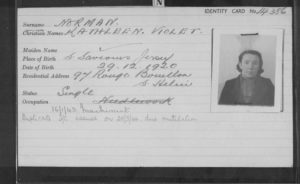 N
IDENTITY CARD No. 4386
Surname NORMAN.
Christian Names KATHLEEN VIOLET.
Maiden Name
Place of Birth St Saviours Jersey
Date of Birth 29.12.1920
Residential Address 97 Rouge Bouillon
St Helier
Status Single
Occupation Needlework
Duplicate I/C issued on due mutilation